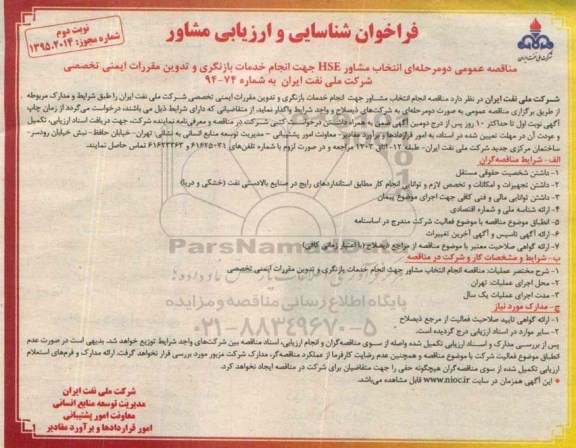 نوبت دوم
شماره مجوز: ۱۳۹۵.۲۰۱۴
فراخوان شناسایی و ارزیابی مشاور
شرکت ملی نفت ایران
مناقصه عمومی دومرحله‌ای انتخاب مشاور HSE جهت انجام خدمات بازنگری و تدوین مقررات ایمنی تخصصی
شرکت ملی نفت ایران به شماره ۷۴-۹۴
شرکت ملی نفت ایران در نظر دارد مناقصه انجام انتخاب مشاور جهت انجام خدمات بازنگری و تدوین مقررات ایمنی تخصصی شرکت ملی نفت ایران را طبق شرایط و مدارک مربوطه
از طریق برگزاری مناقصه عمومی به صورت دومرحله‌ای به شرکت‌های ذیصلاح و واجد شرایط واگذار نماید. از متقاضیانی که دارای شرایط ذیل می باشند، درخواست می‌گردد از زمان چاپ
آگهی نوبت اول تا حداکثر ۱۰ روز پس از درج دومین آگهی ضمن به همراه داشتن درخواست کتبی شرکت در مناقصه و معرفی‌نامه نماینده شرکت، جهت دریافت اسناد ارزیابی، تکمیل
و عودت آن در مهلت تعیین شده در اسناد، به امور قراردادها و برآورد مقادیر- معاونت امور پشتیبانی – مدیریت توسعه منابع انسانی به نشانی: تهران- خیابان حافظ- نبش خیابان رودسر-
ساختمان مرکزی جدید شرکت ملی نفت ایران- طبقه ۱۲-اتاق ۱۲۰۳ مراجعه و در صورت لزوم با شماره تلفن‌های ۶۱۶۲۵۰۳۱ و ۶۱۶۲۳۳۶۴ تماس حاصل نمایند.
الف- شرایط مناقصه‌گران
۱- داشتن شخصیت حقوقی مستقل
۲- داشتن تجهیزات و امکانات و تخصص لازم و توانایی انجام کار مطابق استانداردهای رایج در صنایع بالادستی نفت (خشکی و دریا)
۳- داشتن توانایی مالی و فنی کافی جهت اجرای موضوع پیمان
۴- ارائه شناسه ملی و شماره اقتصادی
۵- انطباق موضوع مناقصه با موضوع فعالیت شرکت مندرج در اساسنامه
۶- ارائه آگهی تاسیس و آگهی آخرین تغییرات
۷- ارائه گواهی صلاحیت معتبر با موضوع مناقصه از مراجع ذیصلاح (با اعتبار زمانی کافی)
ب- شرایط و مشخصات کار و شرکت در مناقصه
۱- شرح مختصر عملیات: مناقصه انجام انتخاب مشاور جهت انجام خدمات بازنگری و تدوین مقررات ایمنی تخصصی
۲- محل اجرای عملیات: تهران
۳- مدت اجرای عملیات یک سال
ج- مدارک مورد نیاز
۱- ارائه گواهی تایید صلاحیت فعالیت از مرجع ذیصلاح
۲- سایر موارد در اسناد ارزیابی درج گردیده است.
پس از بررسی مدارک و اسناد ارزیابی تکمیل شده واصله از سوی مناقصه‌گران و انجام ارزیابی، اسناد مناقصه بین شرکت‌های واجد شرایط توزیع خواهد شد. بدیهی است در صورت عدم
انطباق موضوع فعالیت شرکت با موضوع مناقصه و همچنین عدم رضایت کارفرما از عملکرد مناقصه‌گر، مدارک شرکت مزبور مورد بررسی قرار نخواهد گرفت. ارائه مدارک و فرم‌های استعلام
ارزیابی تکمیل شده از سوی مناقصه‌گران هیچگونه حقی را جهت متقاضیان برای شرکت در مناقصه ایجاد نخواهد کرد.
این آگهی همزمان در سایت www.nioc.ir قابل مشاهده می‌باشد.
شرکت ملی نفت ایران
مدیریت توسعه منابع انسانی
معاونت امور پشتیبانی
امور قراردادها و برآورد مقادیر
ParsNamadData
پایگاه اطلاع رسانی مناقصه و مزایده
۰۲۱-۸۸۳۴۹۶۷۰-۵